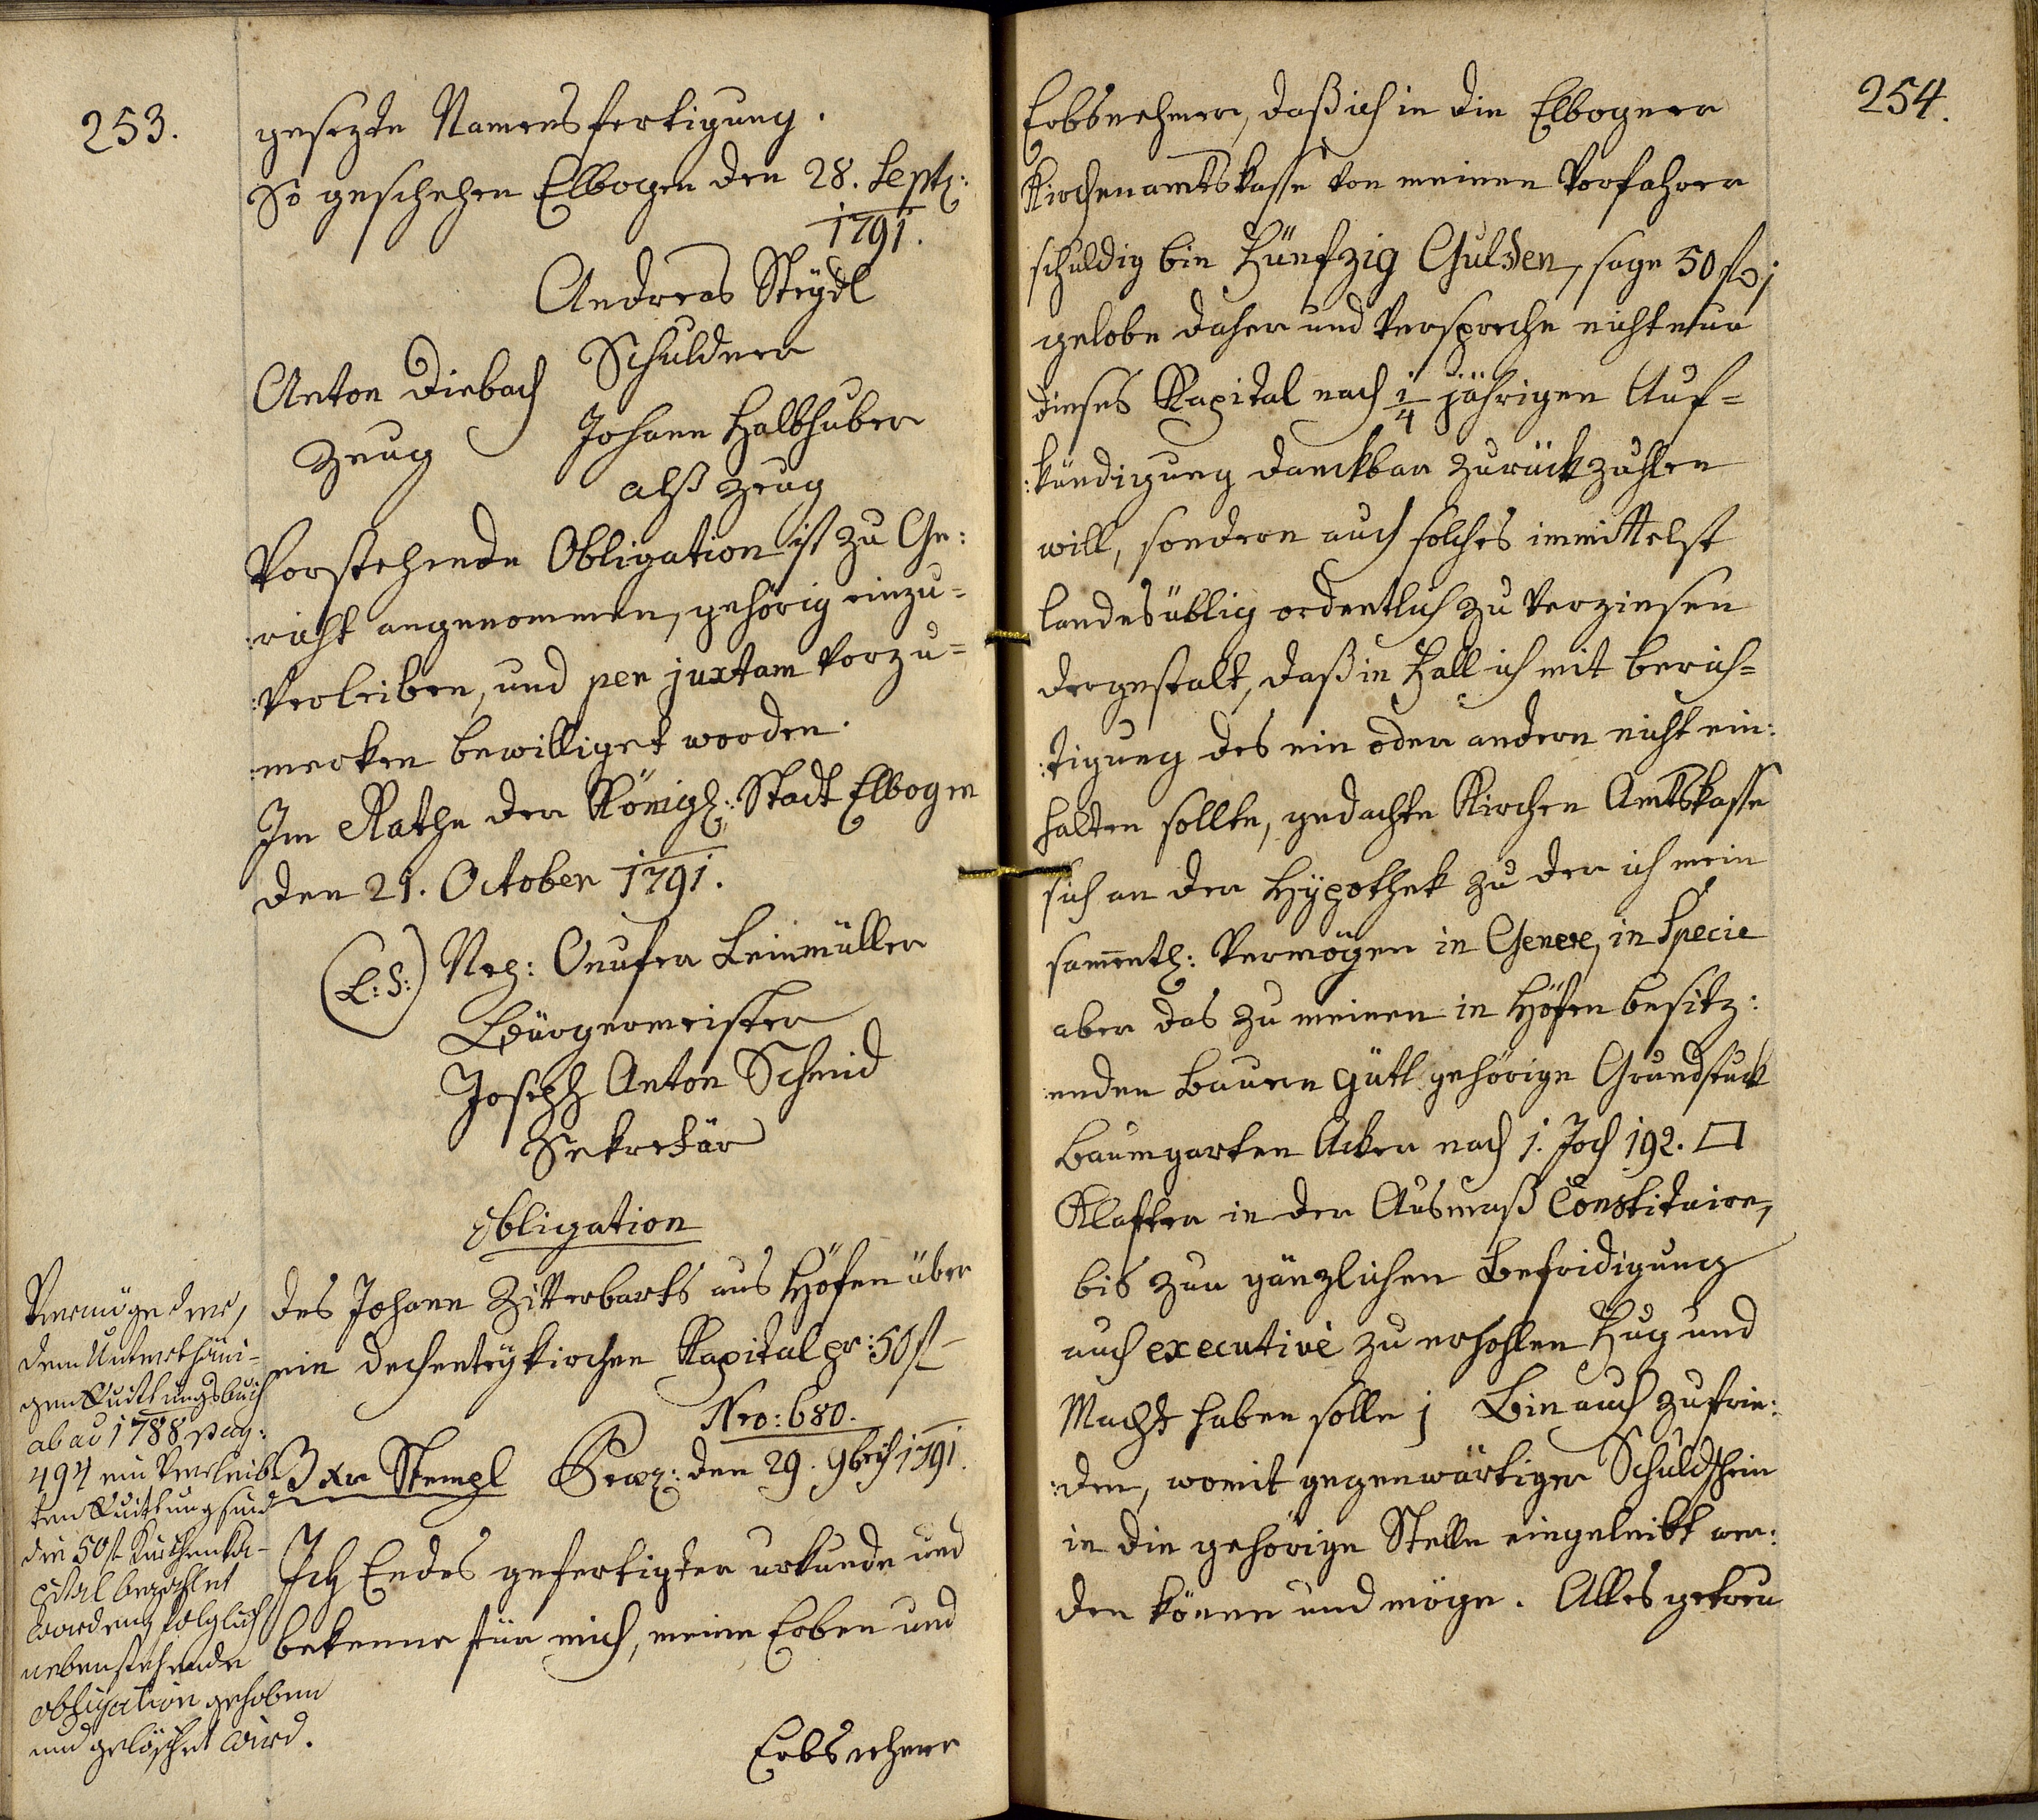 253.
gesezte Namensfertigung.
So geschehen Elbogen den 28. Septz:
1791.
Andreas Steydl
Schuldner
Anton Diebach
Zeug
Johann Halbhuber
alß Zeug
Vorstehende Obligation ist zu Ge:
:richt angenommen, gehörig einzu=
:verleiben, und per juxtam vorzu=
:merken bewilliget worden.
Im Rathe der Königl: Stadt Elbogen
den 21. October 1791.
(L:S:) Nez: Onufer Leinmüller
Bürgermeister
Joseph Anton Schmid
Sekretär
Obligation
des Johann Zitterbarts aus Höfen über
ein dechenteykirchen Kapital pr: 50 fl
Nro: 680.
3 xr Stempl Praes: den 29. 9bris 1791.
Ich Endes gefertigter urkunde und
bekenne für mich, meine Erben und
Erbsnehmer
Vermög der,
dem Unterthäni-
gen Quittungsbuch
ab ao 1788 pag:
494 einverleib
ten Quittung sind
die 50 fl Kirchenka-
pital bezahlet
worden, folglich
nebenstehende
obligation gehoben
und gelöschet wird.
254.
Erbsnehmer, daß ich in die Elbogner
Kirchenamtskasse von meinen Vorfahrer
schuldig bin Fünfzig Gulden, sage 50 fl;
gelobe daher und verspreche nicht nur
dieses Kapital nach 1/4 jährigen Auf=
:kündigung danckbar zurückzuhlen
will, sondern auch solches immittelst
landesüblig ordentlich zu verzinsen
dergestalt, daß in Fall ich mit berich=
:tigung des ein oder andern nicht ein:
halten sollte, gedachte Kirchen Amtskasse
sich an der Hypothek zu der ich mein
sammentl: Vermögen in Genere, in Specie
aber das zu meinen in Höfen besitz:
:enden Bauern gütl gehörige Grundstuck
Baumgarten Acker nach 1. Joch 192. □
Klafter in der Ausmaß Constituire,
bis zur gänzlichen Befridigung
auch executive zu erhohlen Fug und
Macht haben solle; Bin auch zufrie:
:den, womit gegenwärtiger Schuldschein
in die gehörige Stelle eingeleibt wer:
den könne und möge. Alles getreu